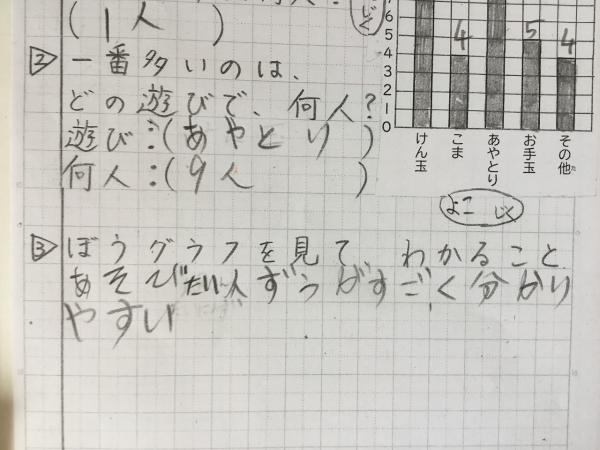 (1人)
じく
② 一番多いのは、
どの遊びで、何人?
遊び:(あやとり)
何人:(9人)
6
5
4
3
2
1
0
4
5
4
けん玉
こま
あやとり
お手玉
その他
よこ じく
③ ぼうグラフを見て、わかること
あそびだい人ずうがすごく分かり
やすい